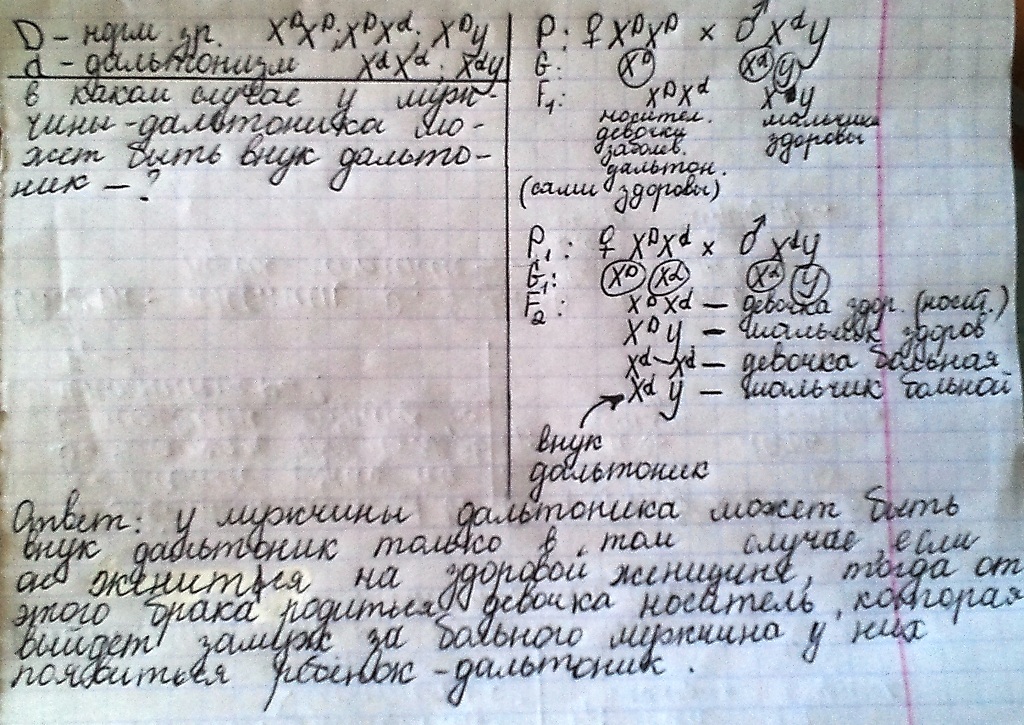 D - норм. зр. XᴰXᴰ; XᴰXᵈ; Xᴰy
d - дальтонизм XᵈXᵈ; Xᵈy
в каком случае у муж-
чины-дальтоника мо-
жет быть внук дальто-
ник - ?
P: ♀ XᴰXᴰ × ♂ Xᵈy
G: Xᴰ Xᵈ y
F₁: XᴰXᵈ Xᴰy
носител. мальчики
девочки здоровы
заболев.
дальтон.
(сами здоровы)
P₁: ♀ XᴰXᵈ × ♂ Xᵈy
G₁: Xᴰ Xᵈ Xᵈ y
F₂: XᴰXᵈ - девочка здор. (носит.)
Xᴰy - мальчик здоров
Xᵈ-Xᵈ - девочка больная
Xᵈ y - мальчик больной
внук
дальтоник
Ответ: у мужчины дальтоника может быть
внук дальтоник только в том случае, если
он женится на здоровой женщине, тогда от
этого брака родиться девочка носатель, которая
выйдет замуж за больного мужчина у них
появиться рбёнок-дальтоник.